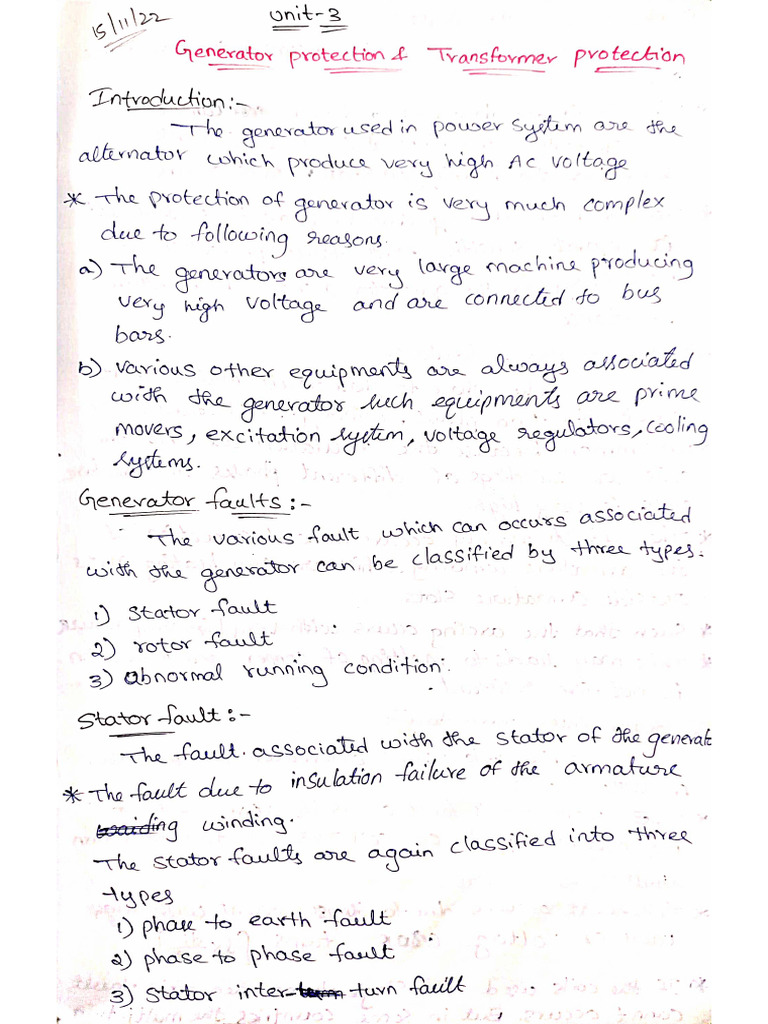 15/11/22
Unit-3
Generator protection & Transformer protection
Introduction:-
The generator used in power system are the
alternator which produce very high AC voltage
* The protection of generator is very much complex
due to following reasons.
a) The generators are very large machine producing
very high voltage and are connected to bus
bars.
b) various other equipments are always associated
with the generator such equipments are prime
movers, excitation system, voltage regulators, cooling
systems.
Generator faults:-
The various fault which can occurs associated
with the generator can be classified by three types.
1) stator fault
2) rotor fault
3) abnormal running condition.
Stator fault:-
The fault associated with the stator of the generat
* The fault due to insulation failure of the armature
winding.
The stator faults are again classified into three
types
1) phase to earth fault
2) phase to phase fault
3) stator inter-turn fault